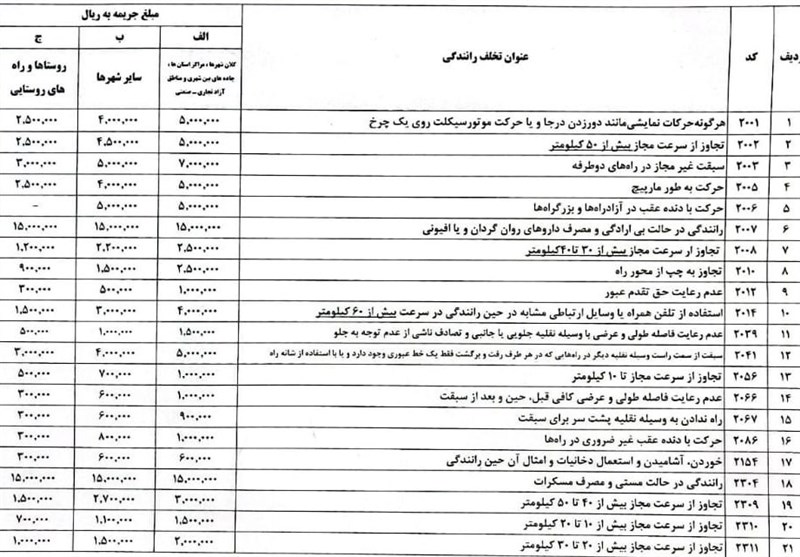 ردیف | کد | عنوان تخلف رانندگی | مبلغ جریمه به ریال
الف | ب | ج
کلان شهرها ، مراکز استان ها ، جاده های بین شهری و مناطق آزاد تجاری – صنعتی | سایر شهرها | روستاها و راه های روستایی
۱ | ۲۰۰۱ | هرگونه حرکات نمایشی مانند دورزدن درجا و یا حرکت موتورسیکلت روی یک چرخ | ۵,۰۰۰,۰۰۰ | ۴,۰۰۰,۰۰۰ | ۲,۵۰۰,۰۰۰
۲ | ۲۰۰۲ | تجاوز از سرعت مجاز بیش از ۵۰ کیلومتر | ۵,۰۰۰,۰۰۰ | ۴,۵۰۰,۰۰۰ | ۲,۵۰۰,۰۰۰
۳ | ۲۰۰۳ | سبقت غیر مجاز در راه‌های دوطرفه | ۷,۰۰۰,۰۰۰ | ۵,۰۰۰,۰۰۰ | ۳,۰۰۰,۰۰۰
۴ | ۲۰۰۵ | حرکت به طور مارپیچ | ۵,۰۰۰,۰۰۰ | ۴,۰۰۰,۰۰۰ | ۲,۵۰۰,۰۰۰
۵ | ۲۰۰۶ | حرکت با دنده عقب در آزادراه‌ها و بزرگراه‌ها | ۵,۰۰۰,۰۰۰ | ۵,۰۰۰,۰۰۰ | –
۶ | ۲۰۰۷ | رانندگی در حالت بی ارادگی و مصرف داروهای روان گردان و یا افیونی | ۱۵,۰۰۰,۰۰۰ | ۱۵,۰۰۰,۰۰۰ | ۱۵,۰۰۰,۰۰۰
۷ | ۲۰۰۸ | تجاوز ار سرعت مجاز بیش از ۳۰ تا۴۰کیلومتر | ۲,۵۰۰,۰۰۰ | ۲,۲۰۰,۰۰۰ | ۱,۲۰۰,۰۰۰
۸ | ۲۰۱۰ | تجاوز به چپ از محور راه | ۲,۵۰۰,۰۰۰ | ۱,۵۰۰,۰۰۰ | ۹۰۰,۰۰۰
۹ | ۲۰۱۲ | عدم رعایت حق تقدم عبور | ۱,۰۰۰,۰۰۰ | ۵۰۰,۰۰۰ | ۳۰۰,۰۰۰
۱۰ | ۲۰۱۴ | استفاده از تلفن همراه یا وسایل ارتباطی مشابه در حین رانندگی در سرعت بیش از ۶۰ کیلومتر | ۴,۰۰۰,۰۰۰ | ۳,۰۰۰,۰۰۰ | ۱,۵۰۰,۰۰۰
۱۱ | ۲۰۳۹ | عدم رعایت فاصله طولی و عرضی با وسیله نقلیه جلویی یا جانبی و تصادف ناشی از عدم توجه به جلو | ۱,۵۰۰,۰۰۰ | ۱,۰۰۰,۰۰۰ | ۵۰۰,۰۰۰
۱۲ | ۲۰۴۱ | سبقت از سمت راست وسیله نقلیه دیگر در راه‌هایی که در هر طرف رفت و برگشت فقط یک خط عبوری وجود دارد و یا با استفاده از شانه راه | ۵,۰۰۰,۰۰۰ | ۴,۰۰۰,۰۰۰ | ۳,۰۰۰,۰۰۰
۱۳ | ۲۰۵۶ | تجاوز از سرعت مجاز تا ۱۰ کیلومتر | ۱,۰۰۰,۰۰۰ | ۷۰۰,۰۰۰ | ۵۰۰,۰۰۰
۱۴ | ۲۰۶۶ | عدم رعایت فاصله طولی و عرضی کافی قبل، حین و بعد از سبقت | ۱,۰۰۰,۰۰۰ | ۶۰۰,۰۰۰ | ۳۰۰,۰۰۰
۱۵ | ۲۰۶۷ | راه ندادن به وسیله نقلیه پشت سر برای سبقت | ۹۰۰,۰۰۰ | ۶۰۰,۰۰۰ | ۳۰۰,۰۰۰
۱۶ | ۲۰۸۶ | حرکت با دنده عقب غیر ضروری در راه‌ها | ۱,۰۰۰,۰۰۰ | ۸۰۰,۰۰۰ | ۳۰۰,۰۰۰
۱۷ | ۲۱۵۴ | خوردن، آشامیدن و استعمال دخانیات و امثال آن حین رانندگی | ۶۰۰,۰۰۰ | ۶۰۰,۰۰۰ | ۳۰۰,۰۰۰
۱۸ | ۲۳۰۴ | رانندگی در حالت مستی و مصرف مسکرات | ۱۵,۰۰۰,۰۰۰ | ۱۵,۰۰۰,۰۰۰ | ۱۵,۰۰۰,۰۰۰
۱۹ | ۲۳۰۹ | تجاوز از سرعت مجاز بیش از ۴۰ تا ۵۰ کیلومتر | ۳,۰۰۰,۰۰۰ | ۲,۷۰۰,۰۰۰ | ۱,۵۰۰,۰۰۰
۲۰ | ۲۳۱۰ | تجاوز از سرعت مجاز بیش از ۱۰ تا ۲۰ کیلومتر | ۱,۵۰۰,۰۰۰ | ۱,۱۰۰,۰۰۰ | ۷۰۰,۰۰۰
۲۱ | ۲۳۱۱ | تجاوز از سرعت مجاز بیش از ۲۰ تا ۳۰ کیلومتر | ۲,۰۰۰,۰۰۰ | ۱,۵۰۰,۰۰۰ | ۱,۰۰۰,۰۰۰